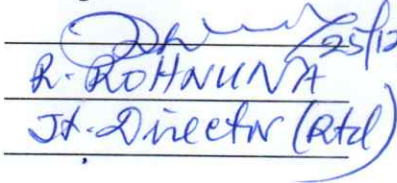 25/12
R. ROHNUNA
Jt. Director (Rtd)